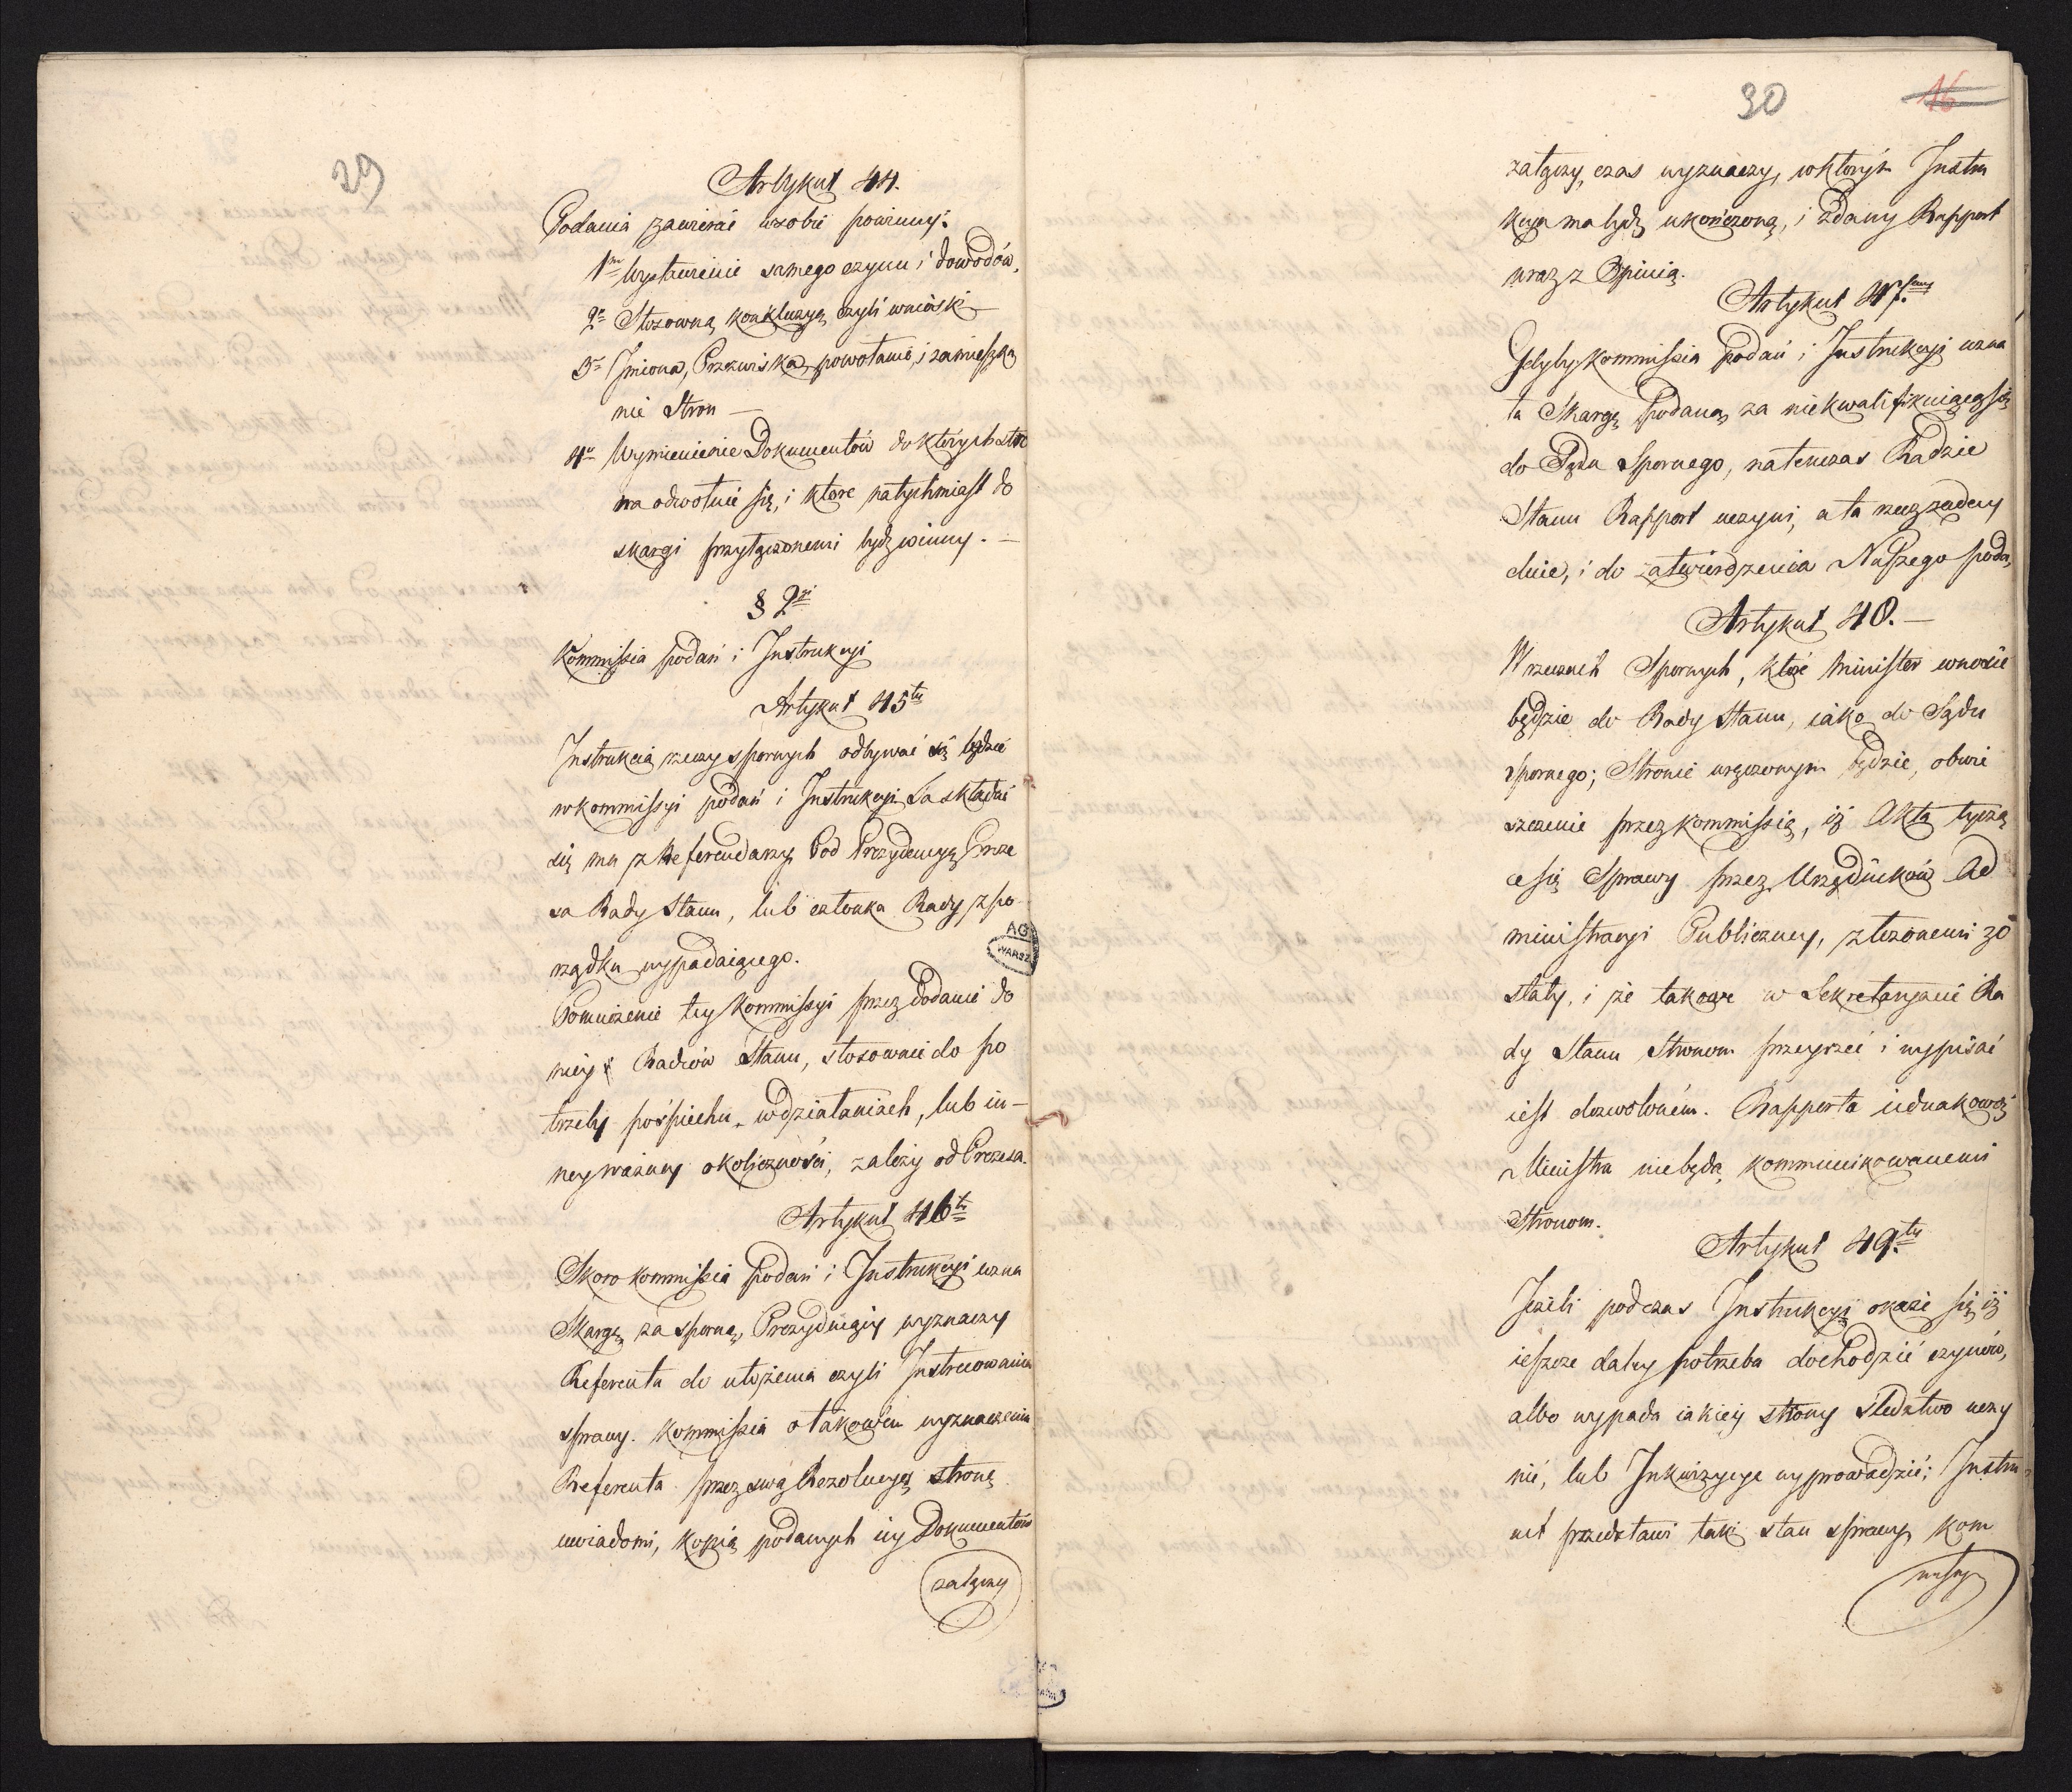 29
Artykuł 44.
Podania zawierać w sobie powinny:
1<sup>mo</sup> Wystawienie samego czynu i dowodów,
2<sup>o</sup> Stosowną konkluzyą czyli wnioski —
3<sup>o</sup> Jmiona, Przezwiska, powołanie, i zamieszka
nie Stron —
4<sup>o</sup> Wymienienie Dokumentów do których stro
na odwołuie się, i ktore natychmiast do
skargi przyłączonemi bydz winny. —
§ 2<sup>gi</sup>
Kommissia podań i Instrukcyi
Artykuł 45<sup>ty</sup>
Instrukcia rzeczy spornych odbywać się będzie
w kommissyi podań i Instrukcyi. Ta składać
się ma z Referendarzy Pod Prezydencyą Preze
sa Rady Stanu, lub członka Rady z po-
rządku wypadaiącego.
Pomnożenie tey Kommissyi przez dodanie do
niey Radców Stanu, stosownie do po
trzeby pośpiechu w działaniach, lub in-
ney ważney okoliczności, zależy od Prezesa.
Artykuł 46<sup>ty</sup>
Skoro kommissia Podań i Instrukcyi uzna
Skargę za sporną, Prezyduiący wyznaczy
Referenta do ułożenia czyli Instruowania
sprawy. Kommissia o takowém wyznaczeniu
Referenta przez swą Rezolucyą stronę
uwiadomi, kopią podanych iey Dokumentów
załączy
AG
WARSZ
30
16
załączy, czas wyznaczy, w którym Instru
kcya ma bydź ukończoną, i zdany Rapport
wraz z Opinią.
Artykuł 47.<sup>my</sup>
Gdyby kommissia Podań i Instrukcyi uzna
ła Skargę Podaną za niekwalifikuiącą się
do Sądu Spornego, natenczas Radzie
Stanu Rapport uczyni, a ta rzecz zadecy
duie, i do zatwierdzenia Naszego poda,
Artykuł 48. —
W rzeczach Spornych, które Minister wnosić
będzie do Rady Stanu, iako do Sądu
spornego; Stronie uręczonym będzie, obwie
szczenie przez kommissią, iż Akta tyczą
ce się Sprawy przez Urzędników Ad
ministracyi Publiczney, złożonemi zo
stały, i że takowe w Sekretaryacie Ra
dy Stanu Stronom przeyrzeć i wypisać
iest dozwoloném. Rapporta iednakowoż
Ministra niebędą kommunikowanemi
Stronom.
Artykuł 49.<sup>ty</sup>
Jeżeli podczas Instrukcyi okaże się iż
ieszcze daley potrzeba dochodzić czynów,
albo wypada iakiey strony śledztwo uczy
nić, lub Inkwizycye wyprowadzić; Instru
uct przedstawi taki stan sprawy kom